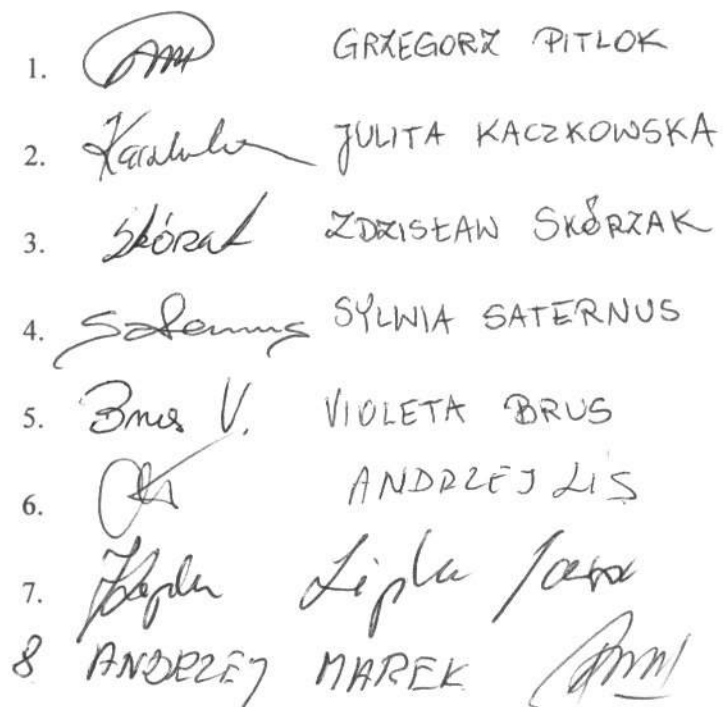 1. GRZEGORZ PITLOK
2. JULITA KACZKOWSKA
3. Skórzak ZDZISŁAW SKÓRZAK
4. Saternus SYLWIA SATERNUS
5. Brus V. VIOLETA BRUS
6. ANDRZEJ LIS
7. Lipka
8 ANDRZEJ MAREK